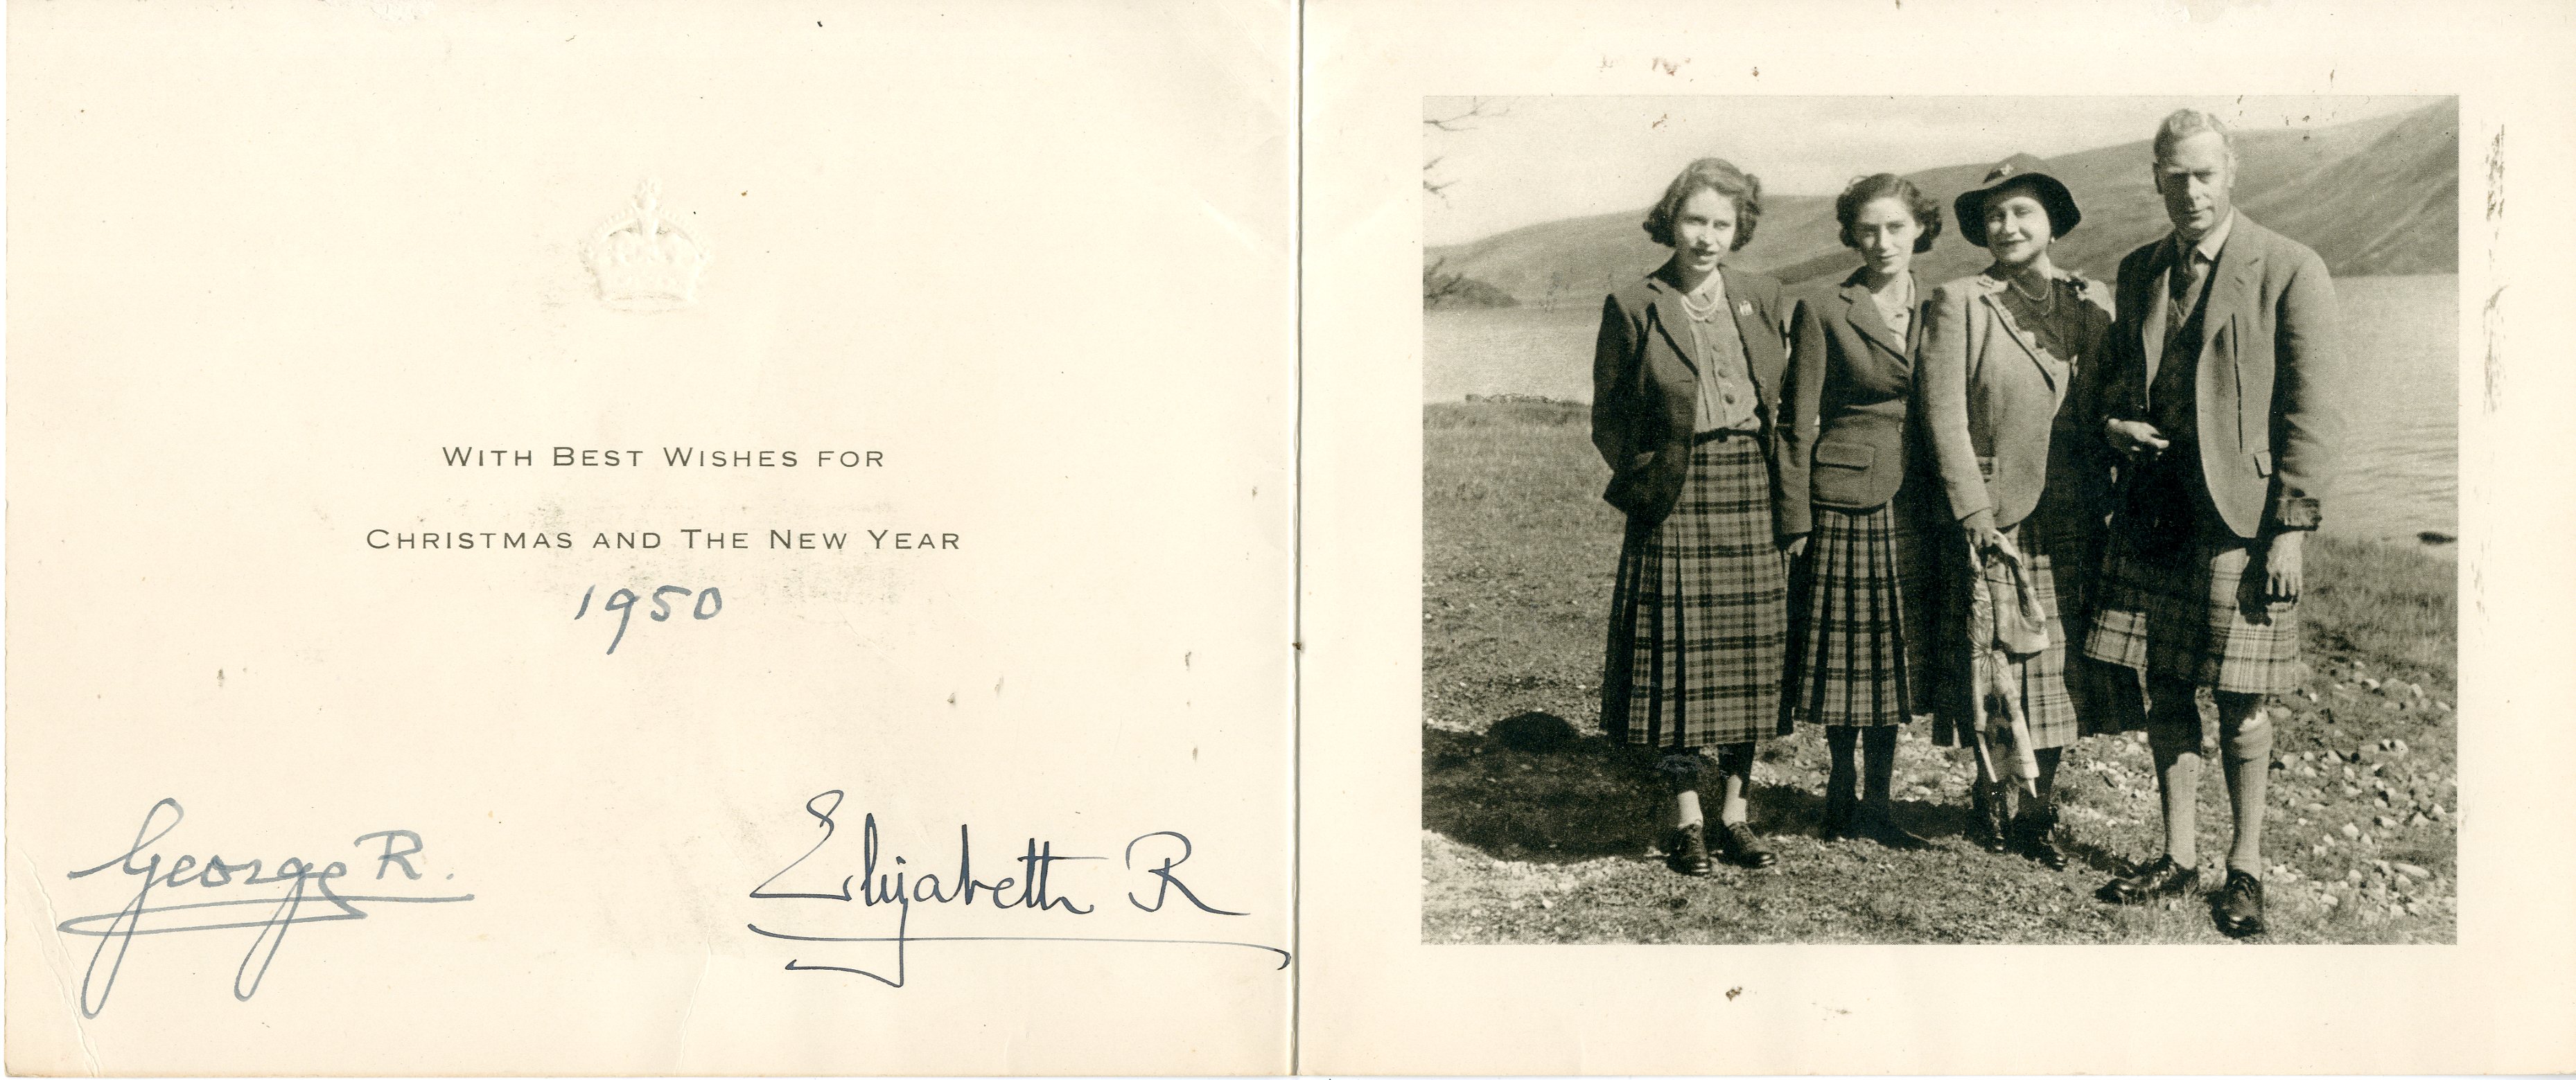 WITH BEST WISHES FOR
CHRISTMAS AND THE NEW YEAR
1950
George R.
Elizabeth R